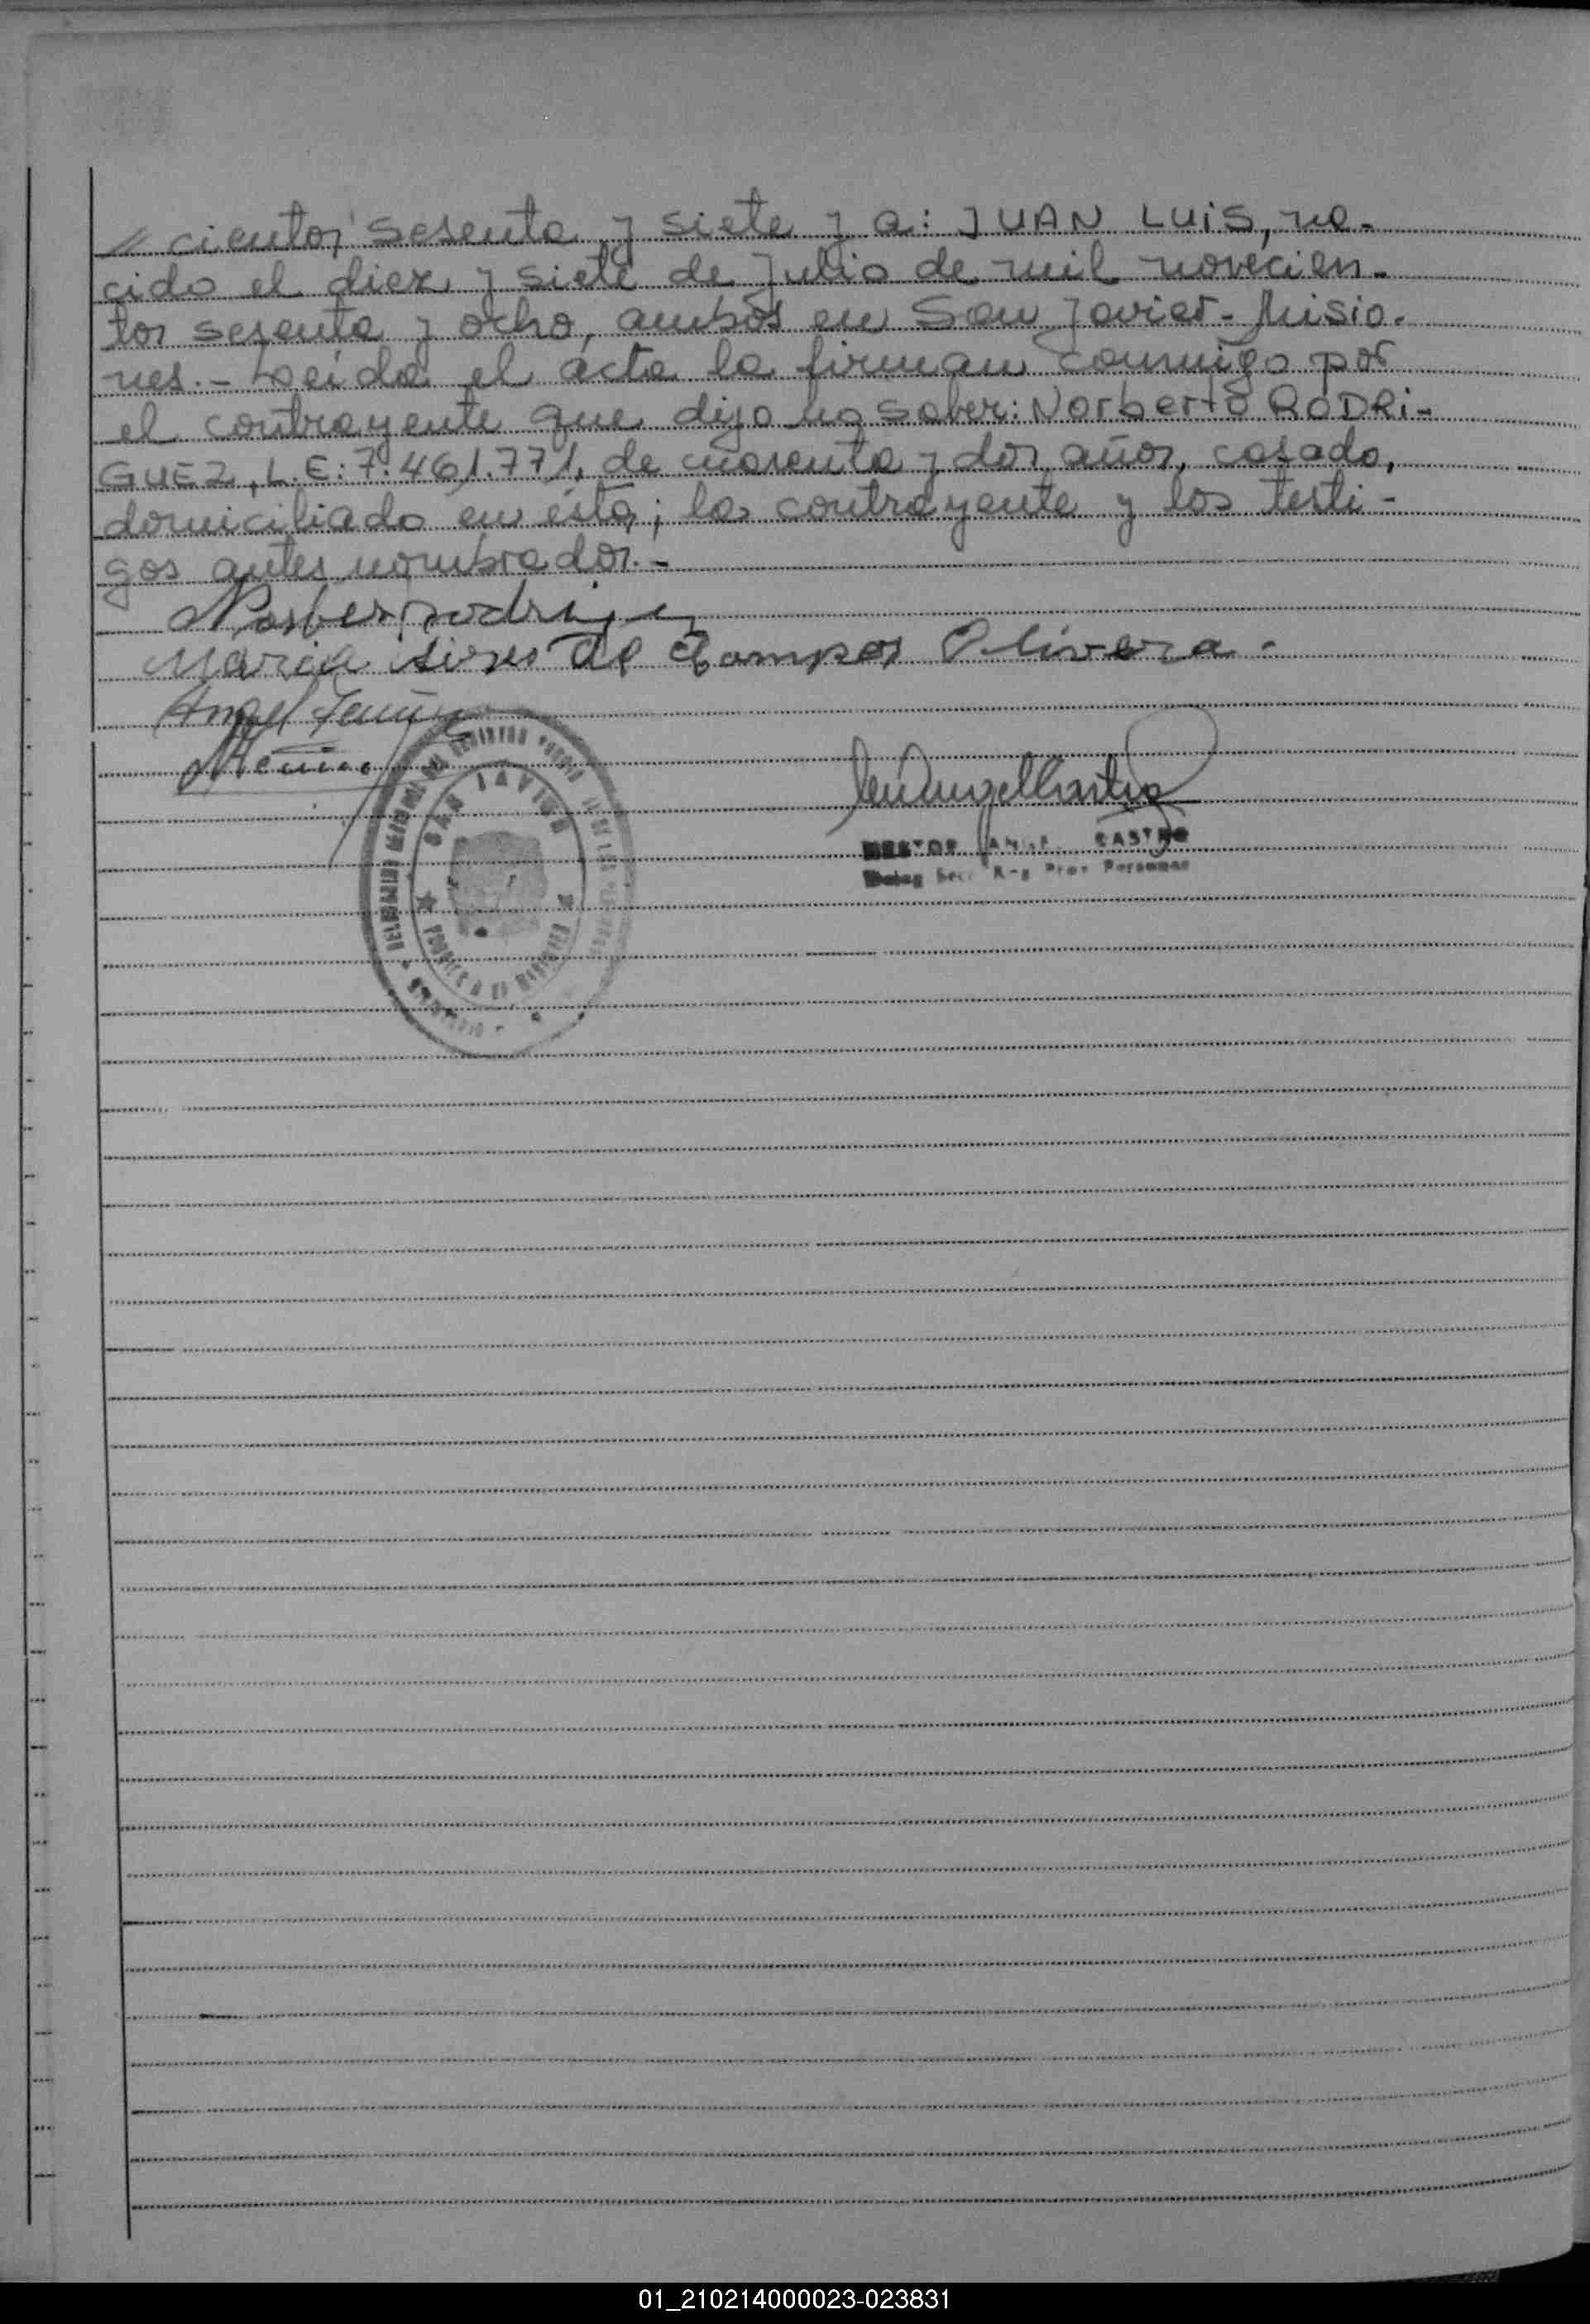 // cientos sesenta y siete y a: JUAN LUIS, na-
cido el diez y siete de julio de mil novecien-
tos sesenta y ocho, ambos en San Javier - Misio-
nes.- Leída el acta la firman conmigo por
el contrayente que dijo no saber: Norberto RODRI-
GUEZ, L.E: 7.461.771, de cuarenta y dos años, casado,
domiciliado en ésta; la contrayente y los testi-
gos antes nombrados.-
Maria de Campos Olivera.
Angel
SAN JAVIER
PROVINCIA DE MISIONES
NESTOR ANGEL CASTRO
01_210214000023-023831